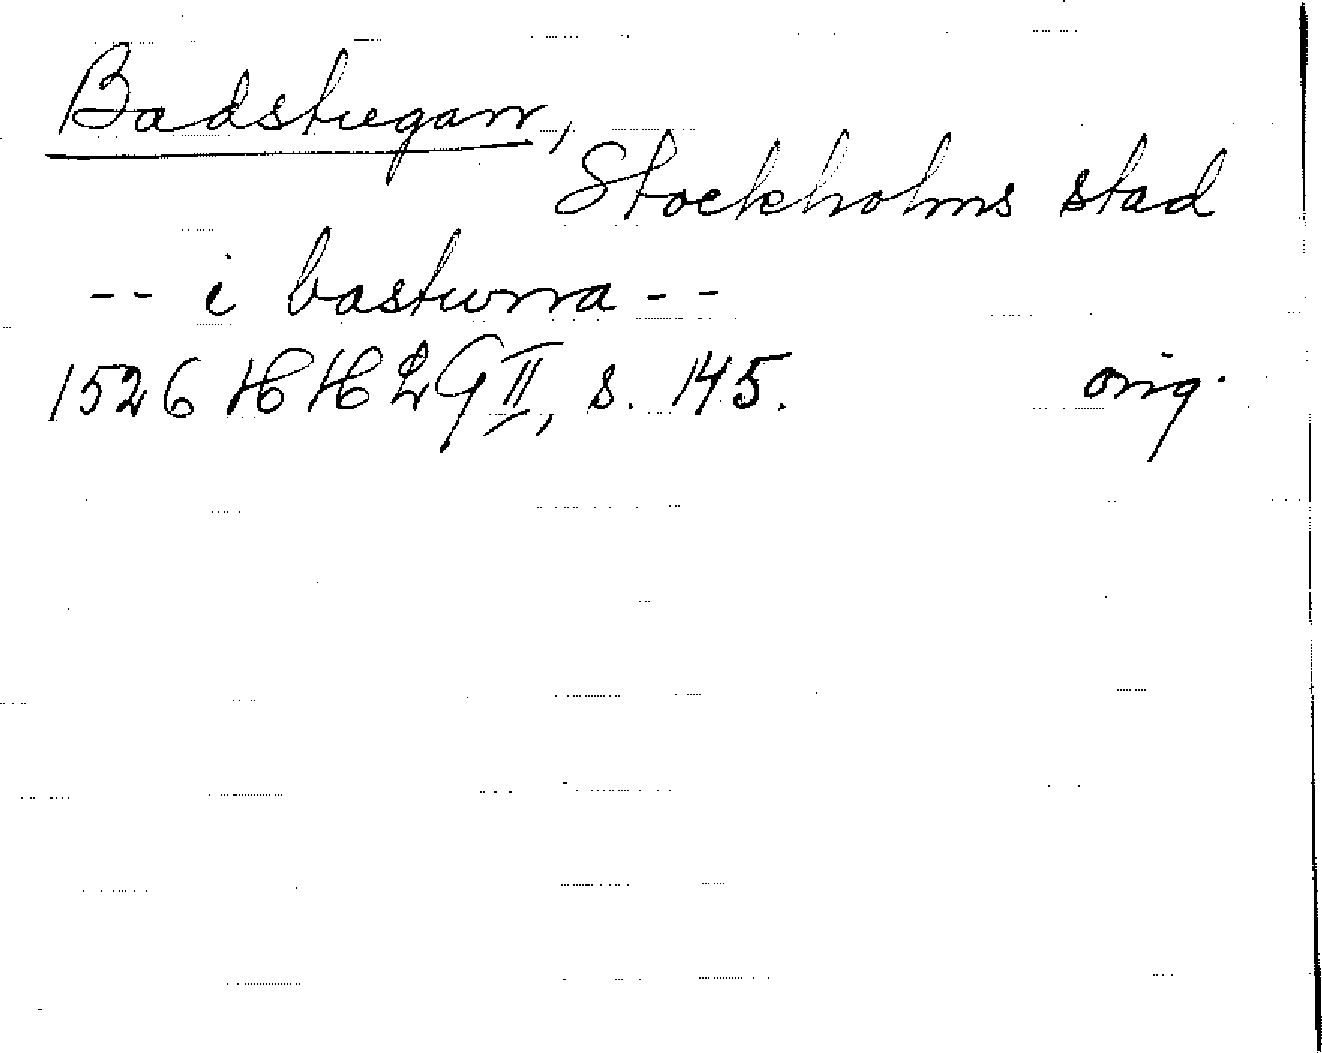 Badstugan,
Stockholms stad
-- i bastuvna --
1526 HH2GII, s. 145. orig.